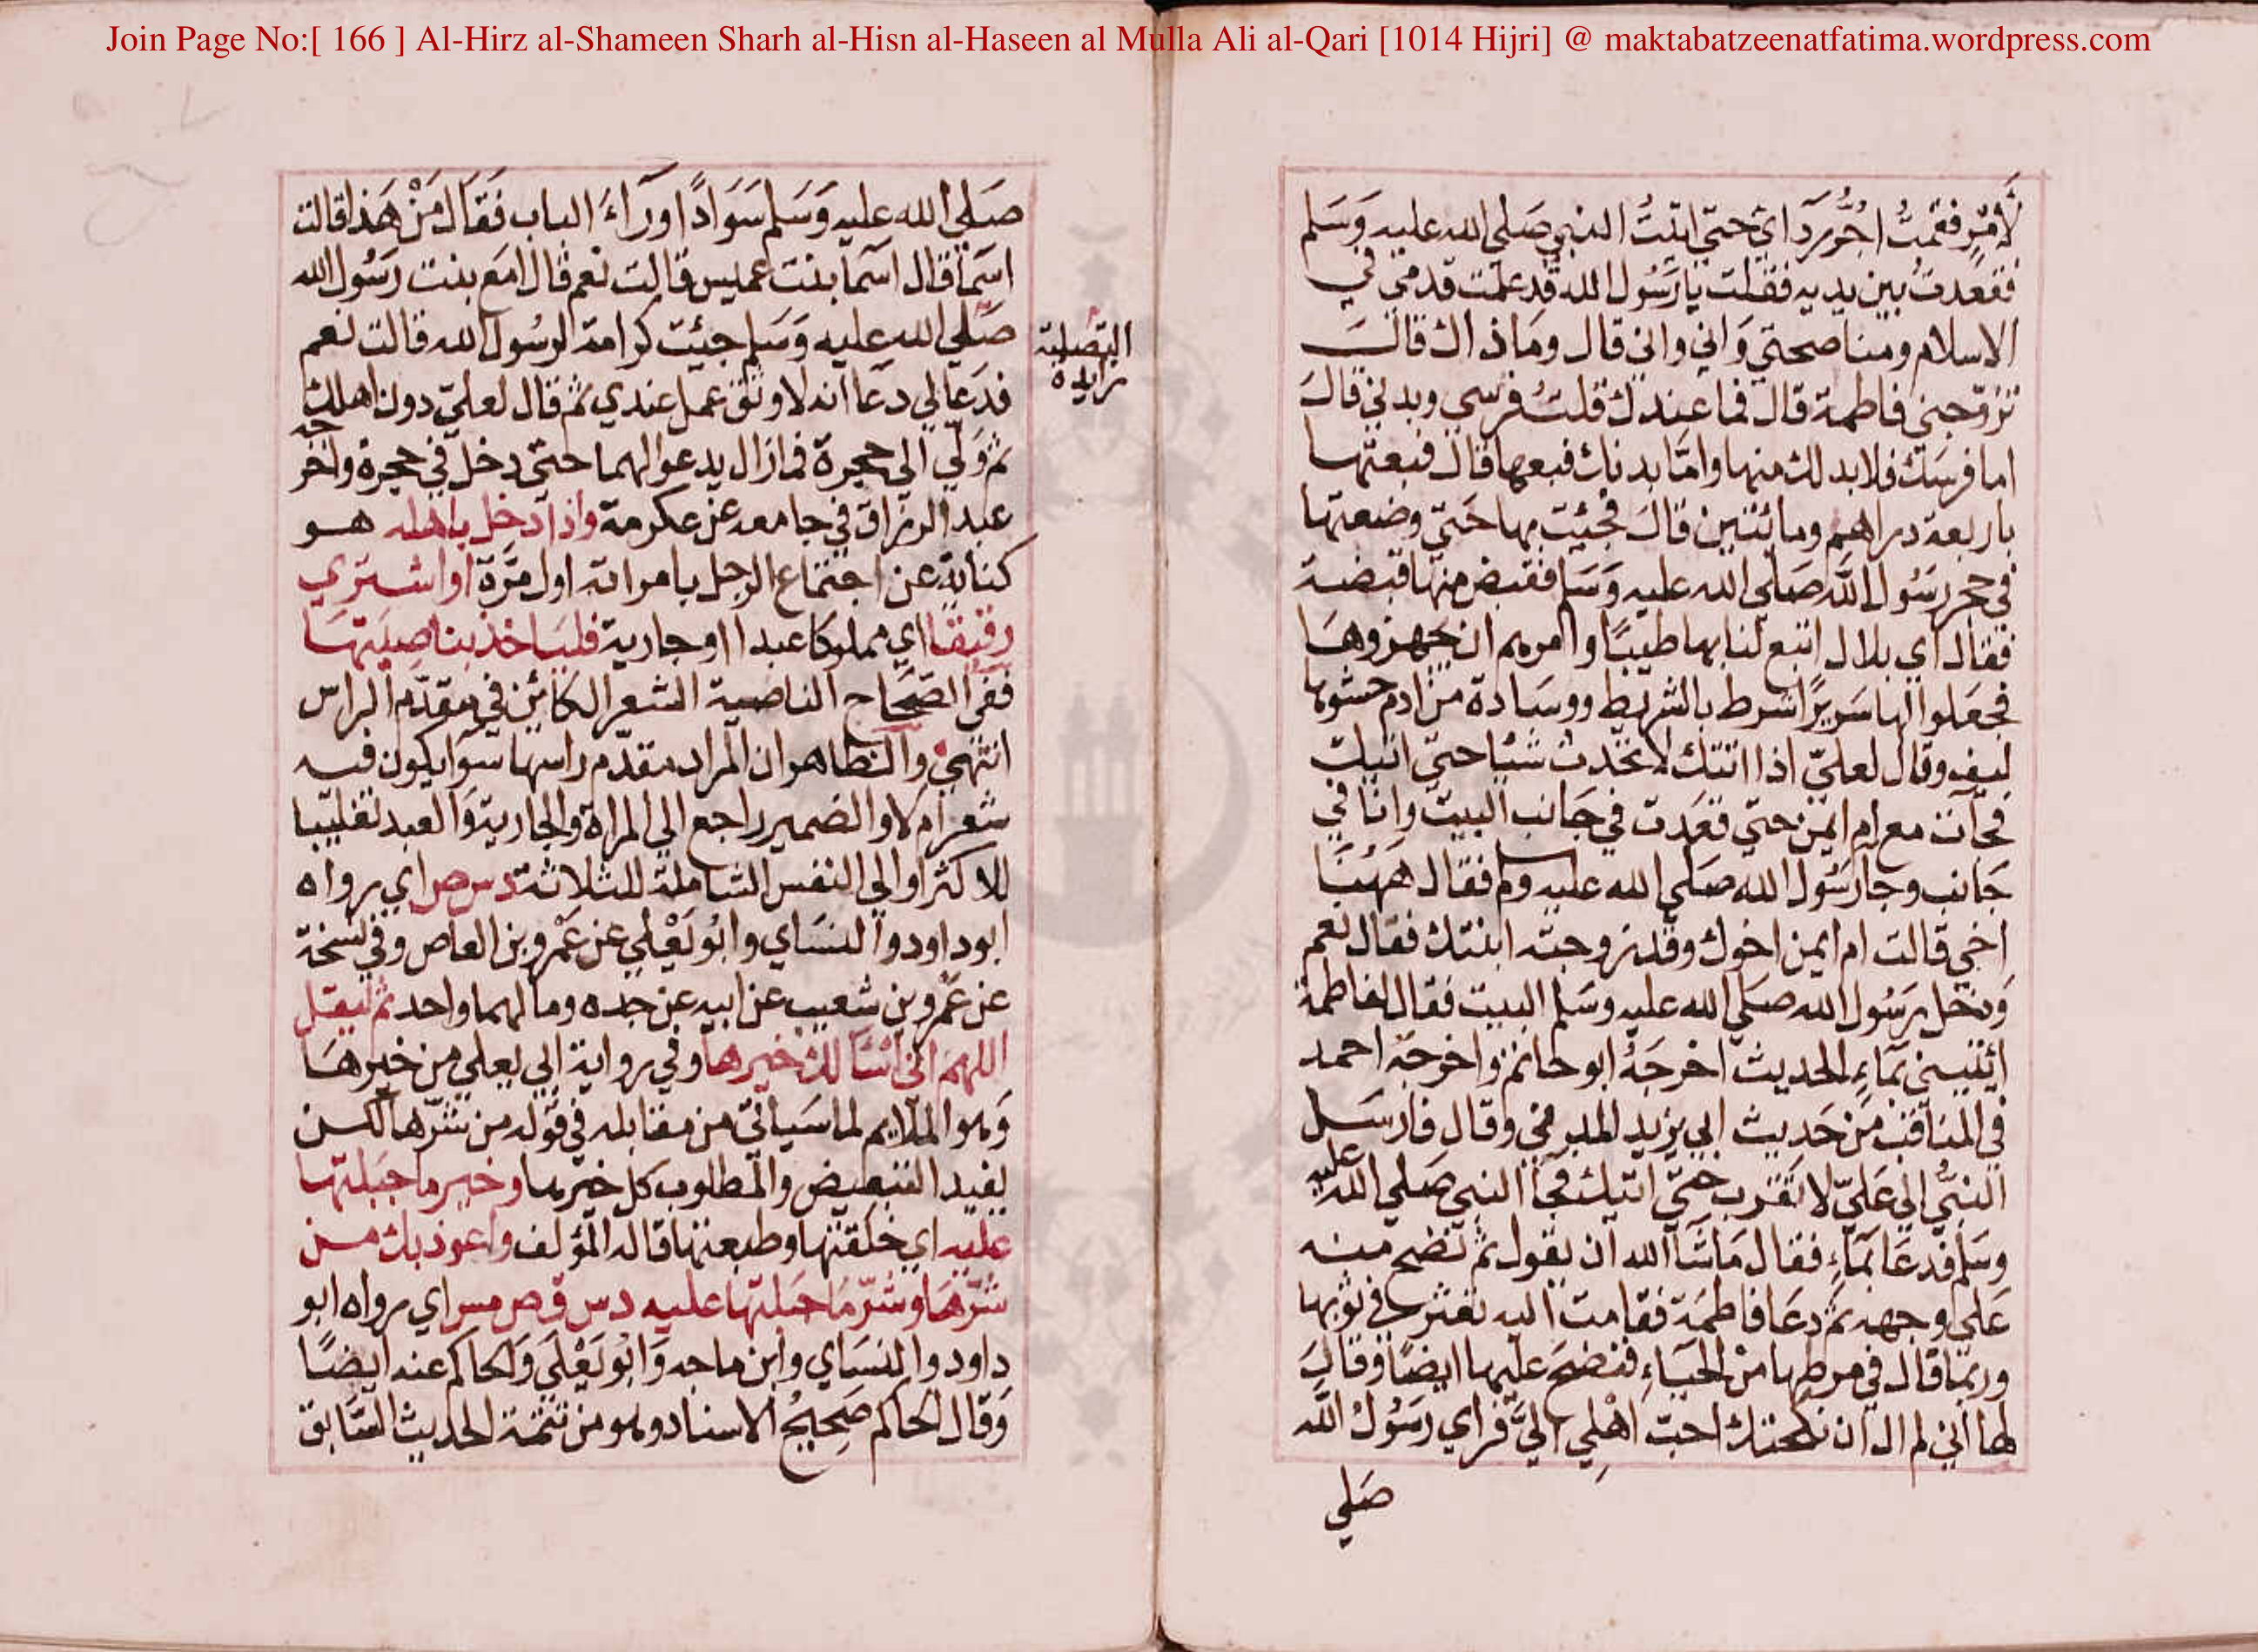 Join Page No:[ 166 ] Al-Hirz al-Shameen Sharh al-Hisn al-Haseen al Mulla Ali al-Qari [1014 Hijri] @ maktabatzeenatfatima.wordpress.com
لأمر فقمتُ اجُرُّ ردآئ حتى اتيتُ النبي صَلي الله عليه وَسَلم
فقعدتُ بين يديه فقلت يا رَسُول الله قد علمت قدمي في
الاسلام ومناصحتي وَاني واني قال ومَا ذاك قالت
تزوّجني فاطمة قال فما عندك قلتُ فرسي وبدني قالَ
اما فرسَك فلا بد لك منها وامّا بدنك فبعها قال فبعتها
باربعة دراهم ومائتين قالَ فجئت بها حَتى وضعتها
في حجر رسُول الله صَلي الله عليه وَسَلم فقبض منها قبضة
فقال اي بلال ابتع لنا بها طيبًا وامرهم ان يجهزوهَا
فجعَلوا لها سَريرًا شرط بالشريط ووسَادة من ادم حشوها
ليف وقال لعليّ اذا اتتك لا تحدث شيًا حتى اتيك
فجآت مع ام ايمن حتى قعَدت في جَانب البيت وانا في
جَانب وجا رسُول الله صَلي الله عليه وسلم فقال ههُنَا
اخي قالت ام ايمن اخوك وقد زوجته ابنتك فقال نعم
وَدخل رَسُول الله صَلي الله عليه وسَلم البيت فقال لفاطمة
ائتيني بمَاءٍ الحديث اخرجَهُ ابو حاتم واخرجَه احمد
في المنَاقب مَن حَديث ابي يزيد المديني وقال فارسَل
النبيُّ الي عَليّ لا تقرب حتيّ اتيك فجآ النبي صَلي الله عليه
وسَلم فدعَا بمَآءٍ فقال مَا شآ الله ان يقول ثم نضح منه
عَلي وجهه ثم دعَا فاطمَة فقامت اليه تعثر في ثوبها
وربمّا قال في مرطها من الحيَاءِ فنضحَ عليها ايضًا وقال
لها اني لم ال ان نكحتك احبّ اهْلي اليَّ فراي رسَوُلُ الله
صَلي
صَلي الله عليه وَسَلم سَوَادًا ورآءَ الباب فقالَ مَنْ هَذا قالت
اسَمآ قال اسَمآ بنت عميس قالت نعم قال امَع بنت رَسُول الله
صَلي الله عليه وَسَلم جئت كرامة لرسُول الله قالت نعم
التصلية
زايدة
فدعَا لي دعَآ انه لاوثق عمل عندي ثم قال لعليّ دون اهلك
ثم وَلّي الي حجرة فما زال يدعو لهما حتى دخل في حجرة واخرجه
عبد الرزاق في جامعه عن عكرمة واذا دخل باهله هو
كناية عن اجتماع الرجل بامراته اول مَرّة او اشتري
رقيقا اي مملوكا عبدا او جارية فليَاخذ بناصيَتهَا
ففي الصّحَاح الناصية الشعر الكائن في مقدّم الراس
انتهيٰ والظاهر ان المراد مقدّم راسها سَوا يكون فيه
شعر ام لا والضمير راجع الي المراة والجارية وَالعبد تغليبًا
للاكثر او الي النفس الشاملة للثلاثة د س ص اي رواه
ابو داود والنسَاي وابُو يَعْلي عن عَمْرو بن العاص وفي نسخة
عن عَمْرو بن شعيب عن ابيه عن جده ومالهما واحد ثم ليقل
اللهم اني اسَالك خيرها وفي رواية ابي يعلي من خيرهَا
وَهو الملايم لما سَياتي من مقابله في قوله من شرّها لكن
يفيد التبعيض والمطلوب كل خيرها وخير ما جَبلتهَا
عليه اي خلقتها وطبعتها قاله المؤلف واعوذ بك من
شرّهَا وشرّ مَا جَبلتها عليه د س ق ص مس اي رواه ابو
داود والنسَاي وابن ماجه وَابُو يَعْلَي وَالحاكم عنه ايضًا
وَقال الحَاكم صَحِيحُ الاسناد وهو من تتمّة الحديث السّابق